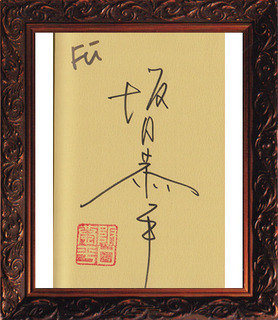 Fū
坂口恭平